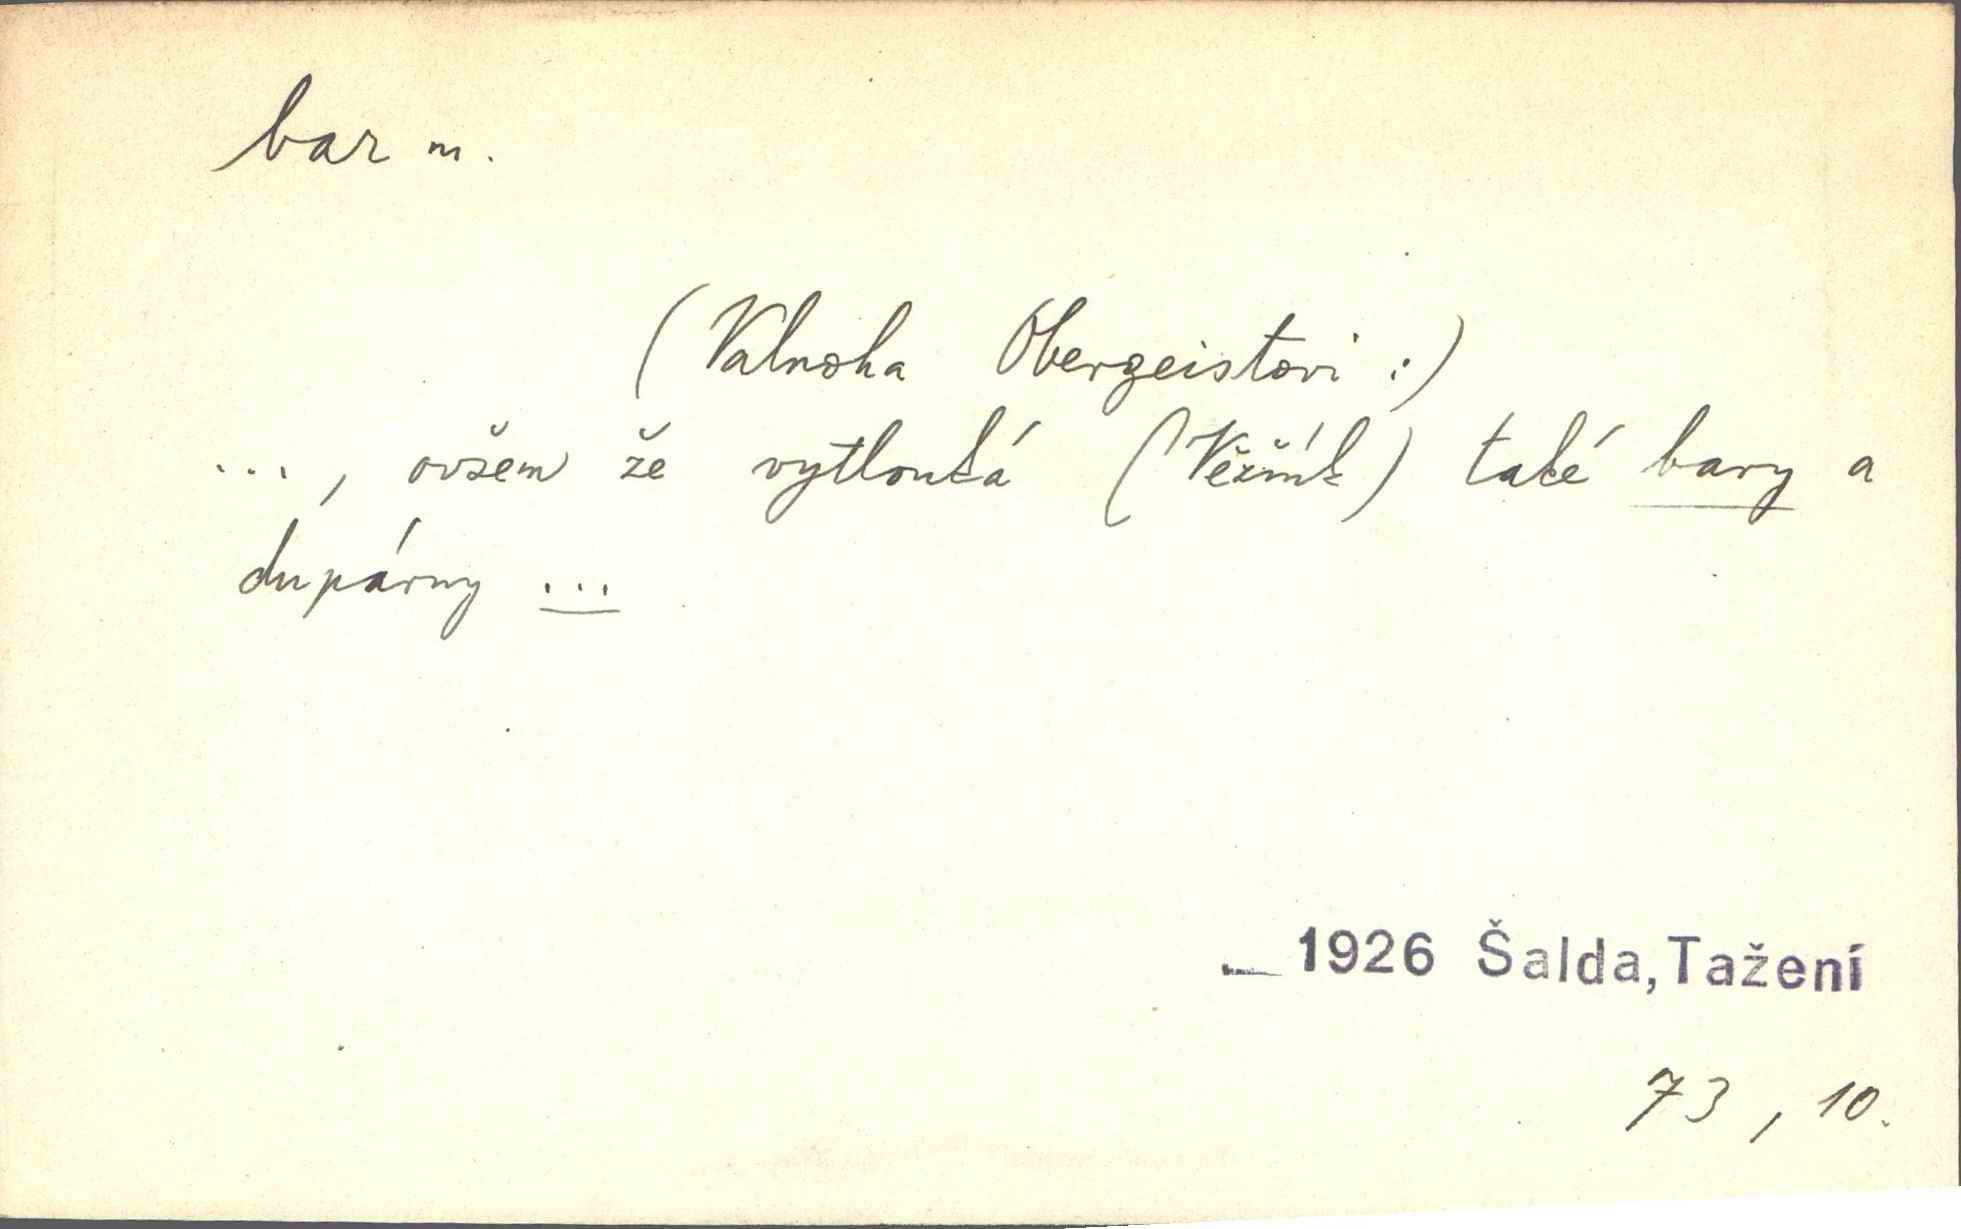 bar m.
(Valnoha Obergeistovi :)
..., ovšem že vytlouká (Věžník) také bary a
dupárny ...
1926 Šalda, Tažení
73, 10.